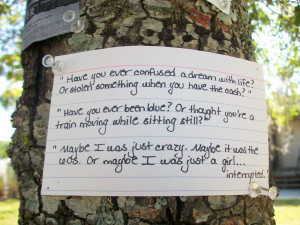 "Have you ever confused a dream with life?
Or stolen something when you have the cash?"
"Have you ever been blue? Or thought you're a
train moving while sitting still?"
"Maybe I was just crazy. Maybe it was the
60s. Or maybe I was just a girl...
interrupted."